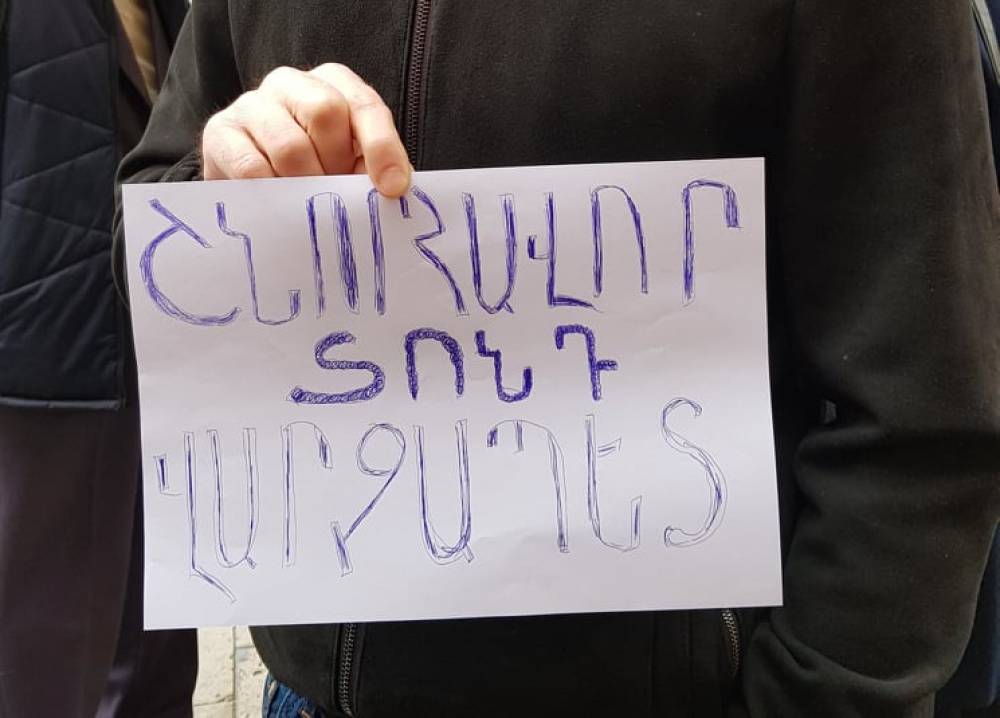 ՇՆՈՐՀԱՎՈՐ
ՏՈՆԴ
ՎԱՐՉԱՊԵՏ